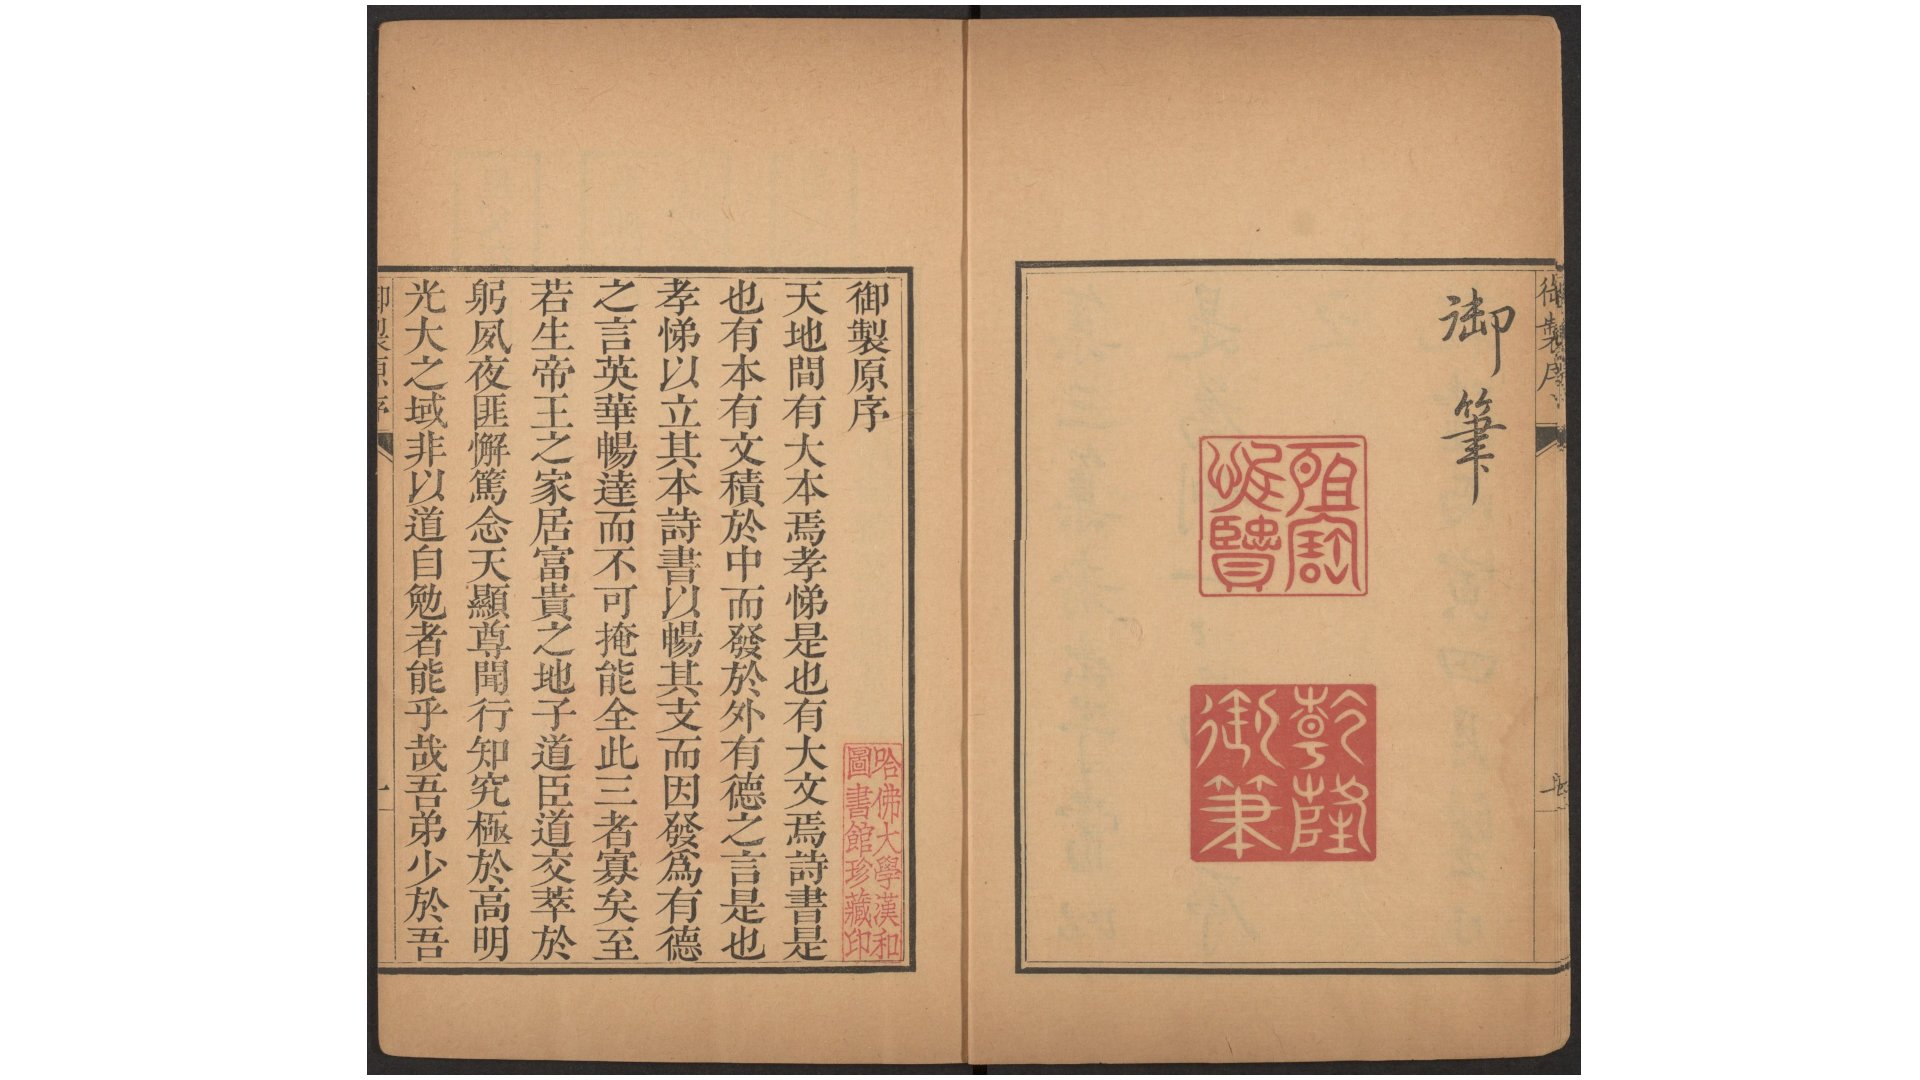 御製序
御筆
乾隆
御筆
御製原序
哈佛大學漢和
圖書館珍藏印
天地間有大本焉孝悌是也有大文焉詩書是
也有本有文積於中而發於外有德之言是也
孝悌以立其本詩書以暢其支而因發爲有德
之言英華暢達而不可掩能全此三者寡矣至
若生帝王之家居富貴之地子道臣道交萃於
躬夙夜匪懈篤念天顯尊聞行知究極於高明
光大之域非以道自勉者能乎哉吾弟少於吾
御製原序
一